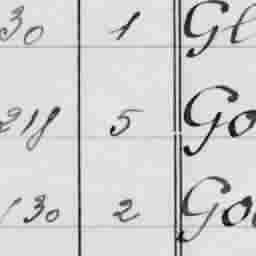 30 1 Gl
218 5 Go
130 2 Go